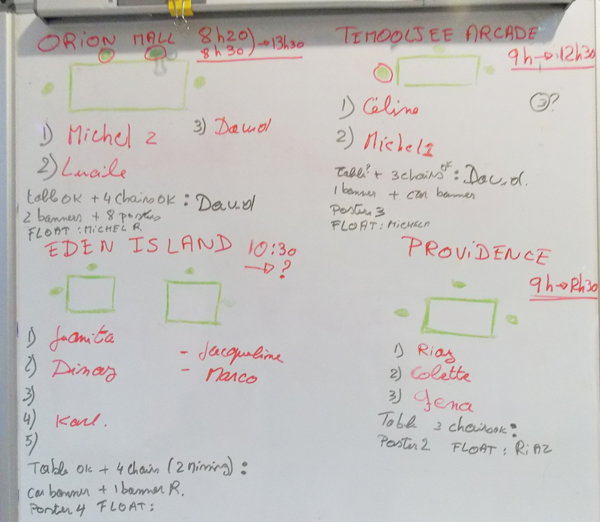 ORION MALL 8h20
8h30 → 13h30
1) Michel 2
2) Lucile
3) David
table OK + 4 chairs OK : David
2 banners + 8 posters
FLOAT : MICHEL R.
TEMOOLJEE ARCADE
9h → 12h30
3?
1) Céline
2) Michel 1
table? + 3 chairs OK : David.
1 banner + car banner
Poster 3
FLOAT : MICHEL R
EDEN ISLAND 10:30
→ ?
1) Juanita
2) Dinaz
3)
4) Karl.
5)
- Jacqueline
- Marco
Table OK + 4 chairs (2 missing) :
car banner + 1 banner R.
Poster 4 FLOAT :
PROVIDENCE
9h → 12h30
1) Riaz
2) Colette
3) Gena
Table 3 chairs ok :
Poster 2 FLOAT : RIAZ